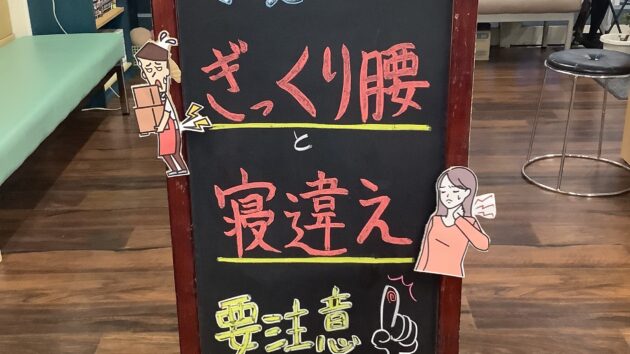 ぎっくり腰
と
寝違え
要注意